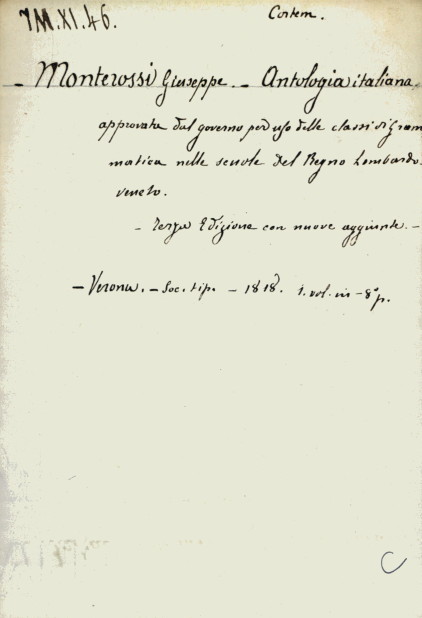 7M.XI.46.
Cortem.
- Monterossi Giuseppe. - Antologia italiana
approvata dal governo per uso delle classi di gram
matica nelle scuole del Regno Lombardo.
veneto.
- Terza Edizione con nuove aggiunte. -
- Verona. - Soc. tip. - 1818. 1. vol. in - 8° p.
C